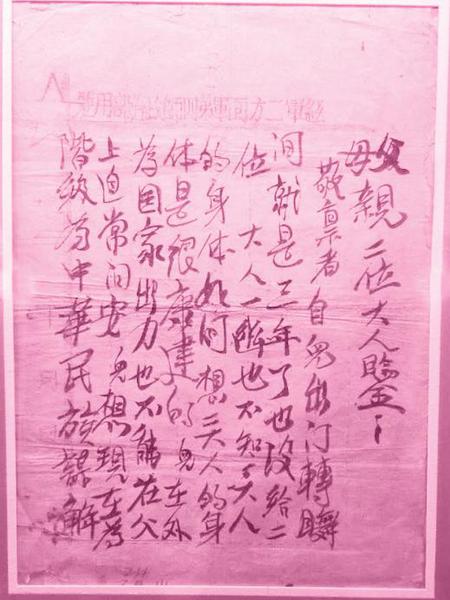 二方面軍 用箋
父母親二位大人
敬禀者自兒出门轉瞬
间就是三年了也沒给二
位 大人一 也不知 大人
的身体如何想 人的身
体是很康建的兒在外
為国家出力也不能在父
上迫常问安 兒想現在為
階级為中華民族謀解